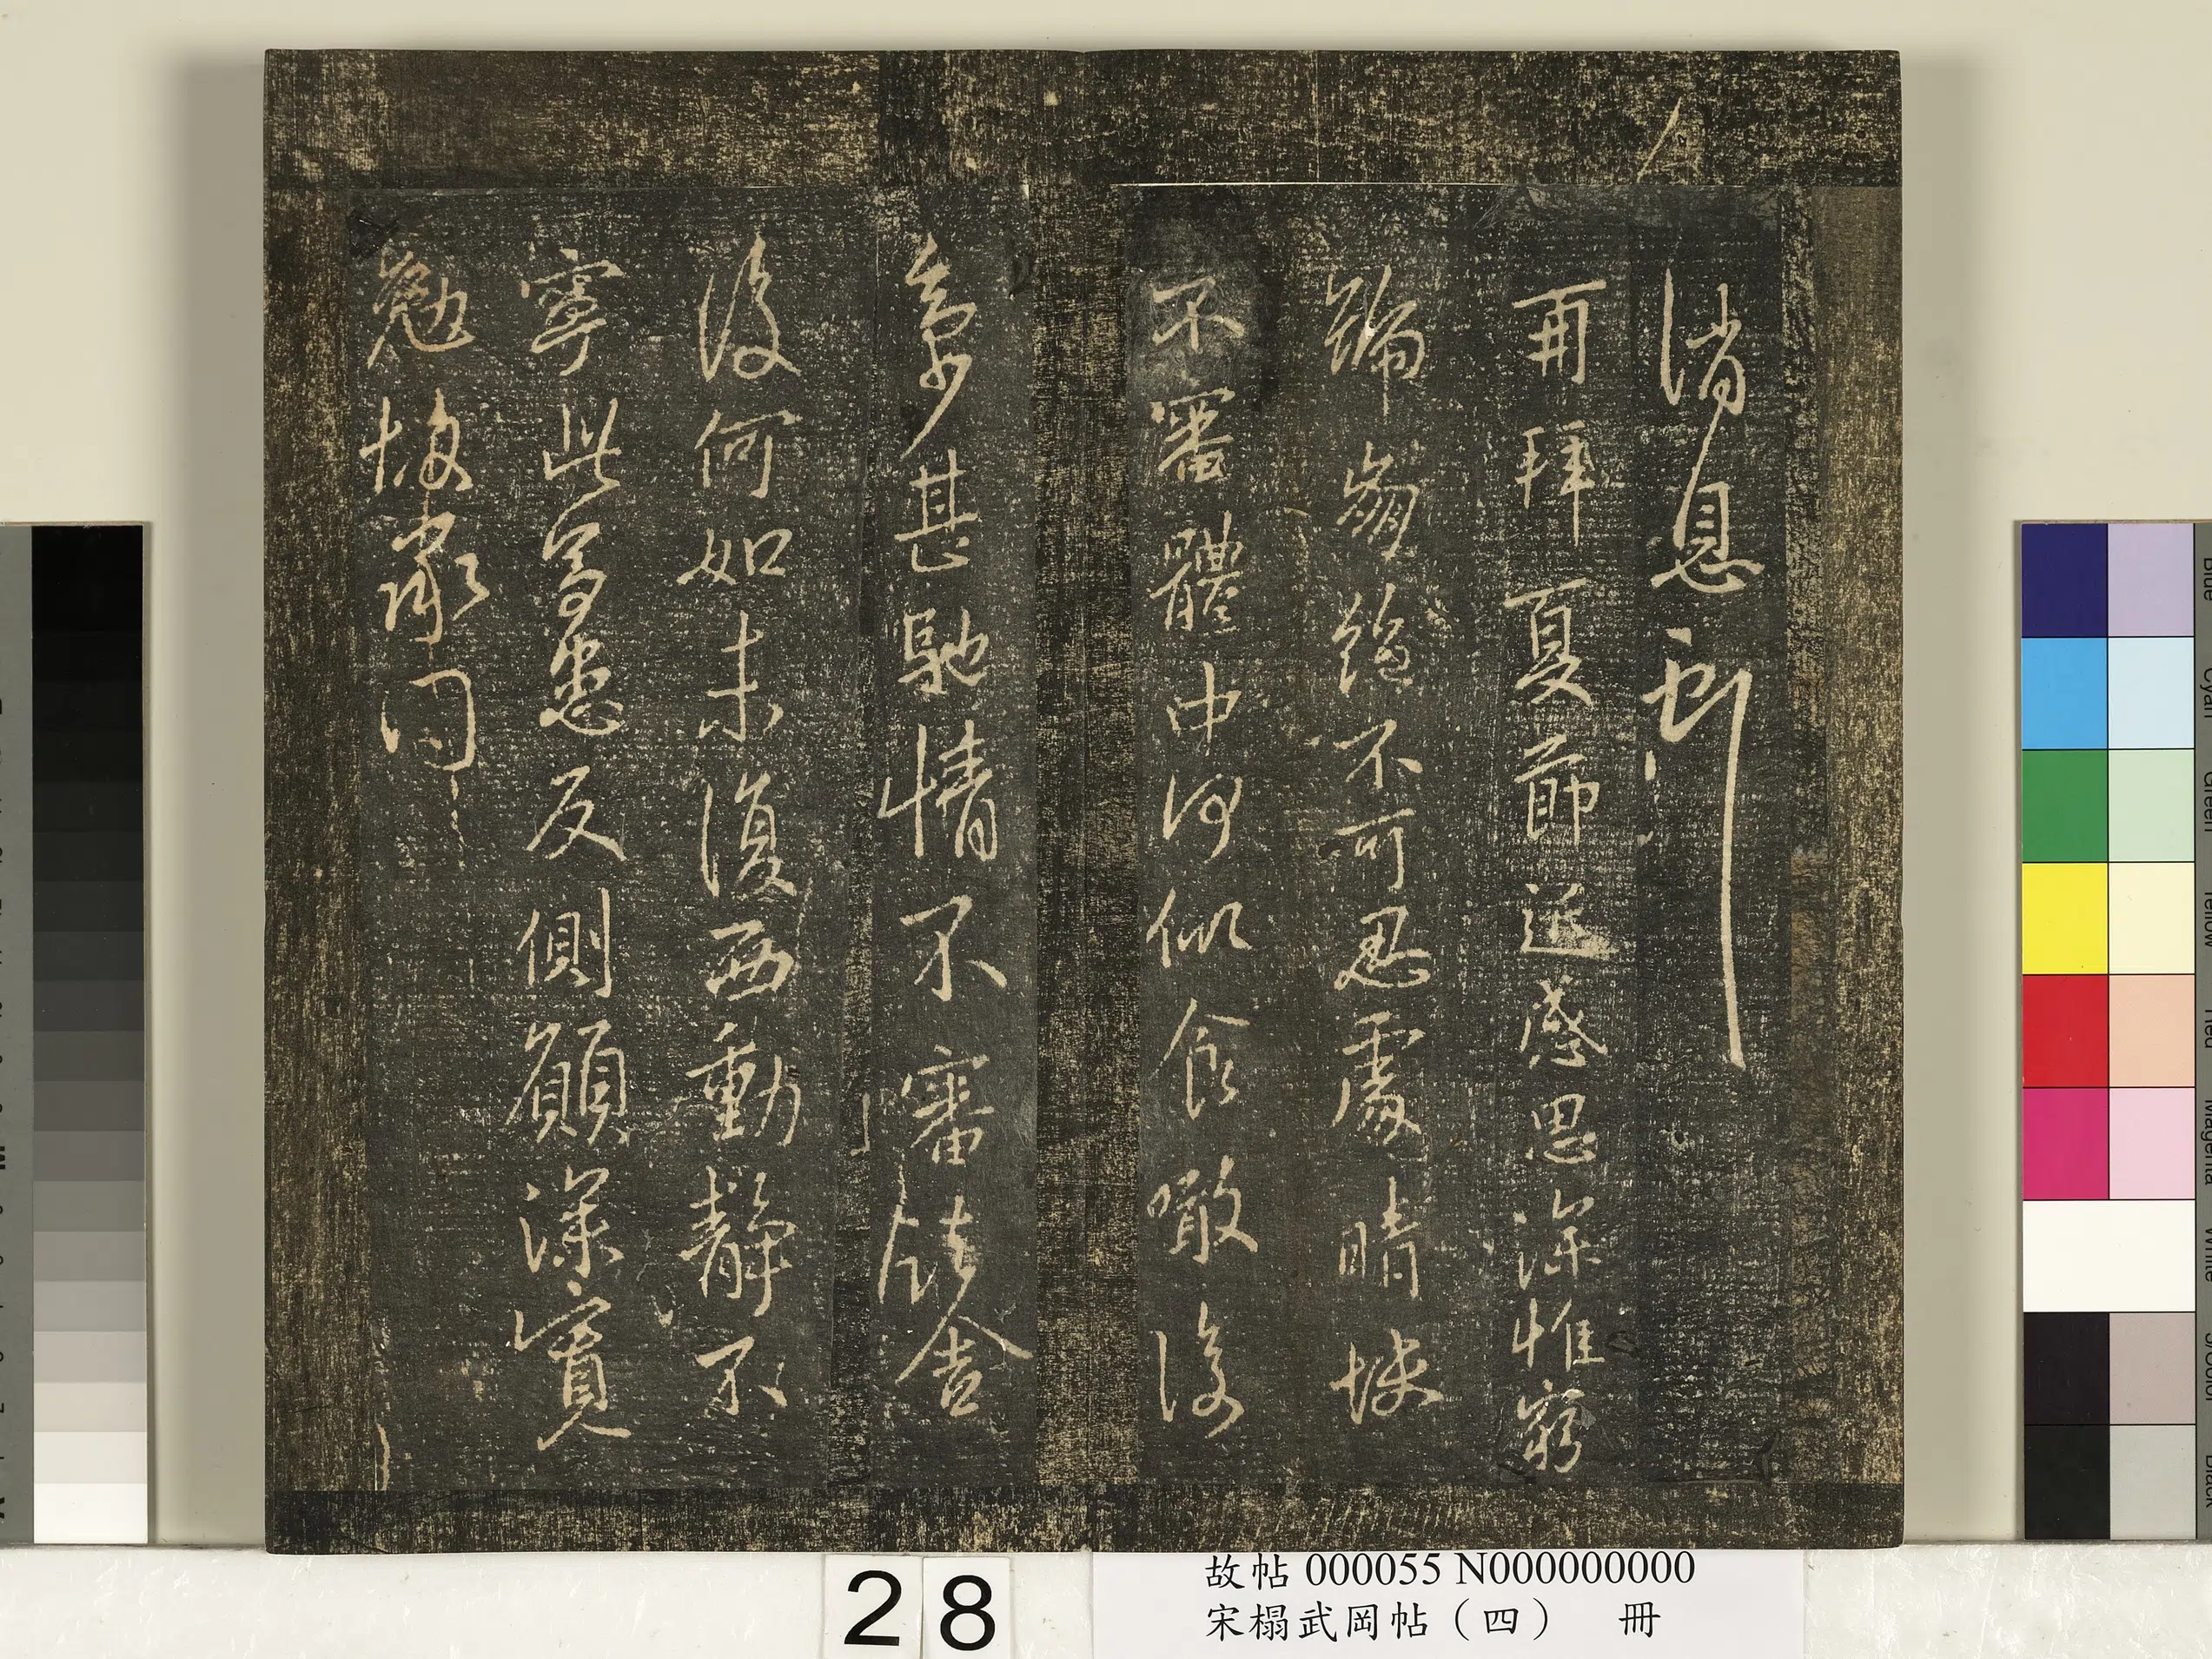 消息
再拜夏節近感思深惟窮
崩絕不可忍處晴快
不審體中何似食噉復
多少甚馳情不審從舍
後何如未復西動靜不
寧此患反側願深寬
勉
28
故帖 000055 N000000000
宋榻武岡帖（四） 冊
Blue
Cyan
Green
Yellow
Red
Magenta
White
3/Color
Black